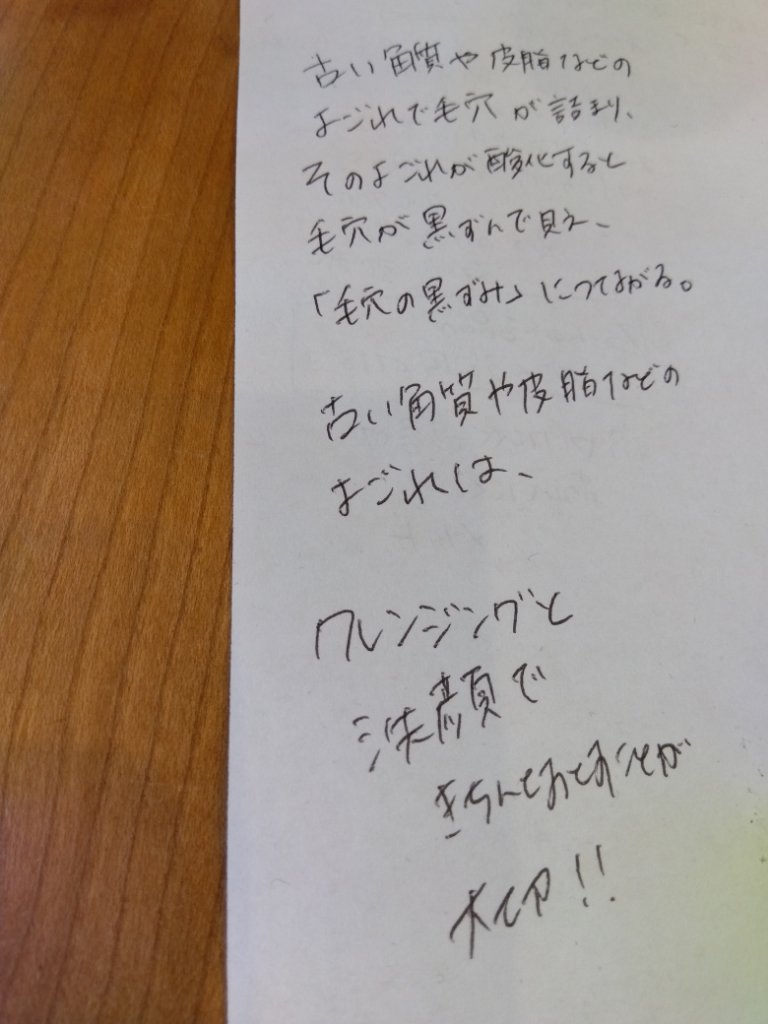 古い角質や皮脂などの
よごれで毛穴が詰まり、
そのよごれが酸化すると
毛穴が黒ずんで見え、
「毛穴の黒ずみ」につながる。
古い角質や皮脂などの
よごれは、
クレンジングと
洗顔で
きちんとおとすことが